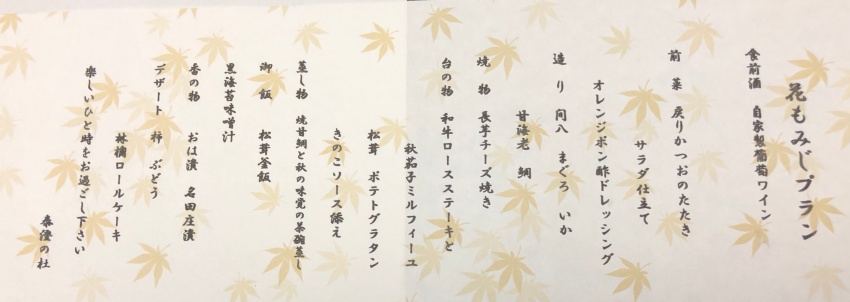 花もみじプラン
食前酒 自家製葡萄ワイン
前菜 戻りかつおのたたき
サラダ仕立て
オレンジポン酢ドレッシング
造り 間八 まぐろ いか
甘海老 鯛
焼物 長芋チーズ焼き
台の物 和牛ロースステーキと
秋茄子ミルフィーユ
松茸 ポテトグラタン
きのこソース添え
蒸し物 焼甘鯛と秋の味覚の茶碗蒸し
御飯 松茸釜飯
黒海苔味噌汁
香の物 おは漬 名田庄漬
デザート 柿 ぶどう
林檎ロールケーキ
楽しいひと時をお過ごし下さい
森澄の杜